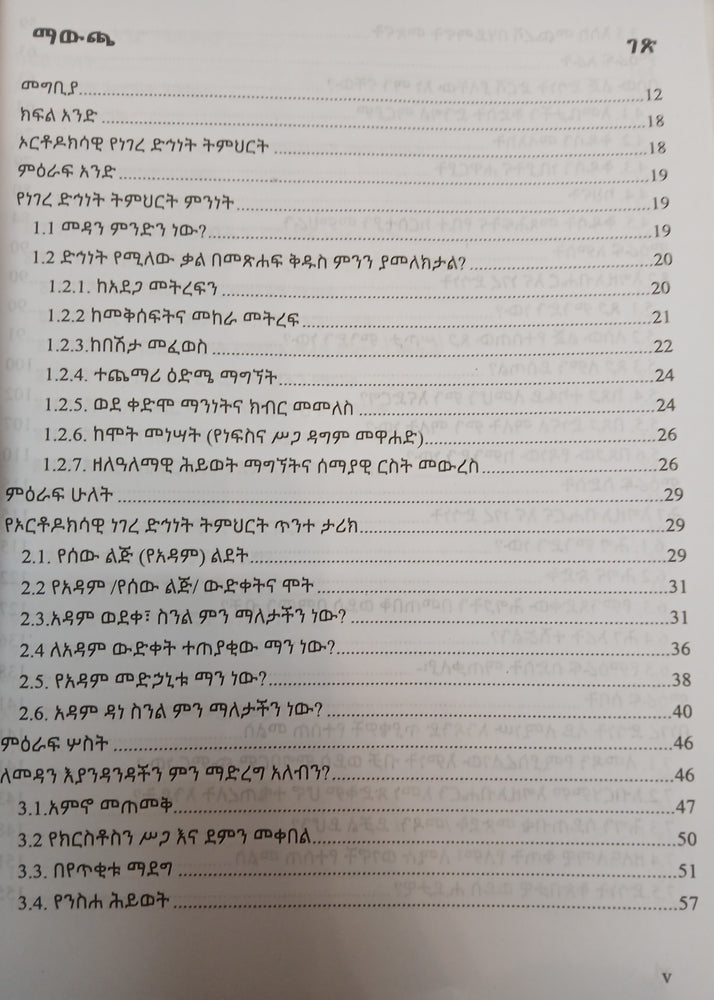 ማውጫ
ገጽ
መግቢያ....................12
ክፍል አንድ....................18
ኦርቶዶክሳዊ የነገረ ድኅነት ትምህርት....................18
ምዕራፍ አንድ....................19
የነገረ ድኅነት ትምህርት ምንነት....................19
1.1 መዳን ምንድን ነው?....................19
1.2 ድኅነት የሚለው ቃል በመጽሐፍ ቅዱስ ምንን ያመለክታል?....................20
1.2.1. ከአደጋ መትረፍን....................20
1.2.2 ከመቅሰፍትና መከራ መትረፍ....................21
1.2.3.ከበሽታ መፈወስ....................22
1.2.4. ተጨማሪ ዕድሜ ማግኘት....................24
1.2.5. ወደ ቀድሞ ማንነትና ክብር መመለስ....................24
1.2.6. ከሞት መነሣት (የነፍስና ሥጋ ዳግም መዋሐድ)....................26
1.2.7. ዘለዓለማዊ ሕይወት ማግኘትና ሰማያዊ ርስት መውረስ....................26
ምዕራፍ ሁለት....................29
የኦርቶዶክሳዊ ነገረ ድኅነት ትምህርት ጥንተ ታሪክ....................29
2.1. የሰው ልጅ (የአዳም) ልደት....................29
2.2 የአዳም /የሰው ልጅ/ ውድቀትና ሞት....................31
2.3.አዳም ወደቀ፣ ስንል ምን ማለታችን ነው?....................31
2.4 ለአዳም ውድቀት ተጠያቂው ማን ነው?....................36
2.5. የአዳም መድኃኒቱ ማን ነው?....................38
2.6. አዳም ዳነ ስንል ምን ማለታችን ነው?....................40
ምዕራፍ ሦስት....................46
ለመዳን እያንዳንዳችን ምን ማድረግ አለብን?....................46
3.1.አምኖ መጠመቅ....................47
3.2 የክርስቶስን ሥጋ እና ደምን መቀበል....................50
3.3. በየጥቂቱ ማደግ....................51
3.4. የንስሐ ሕይወት....................57
v